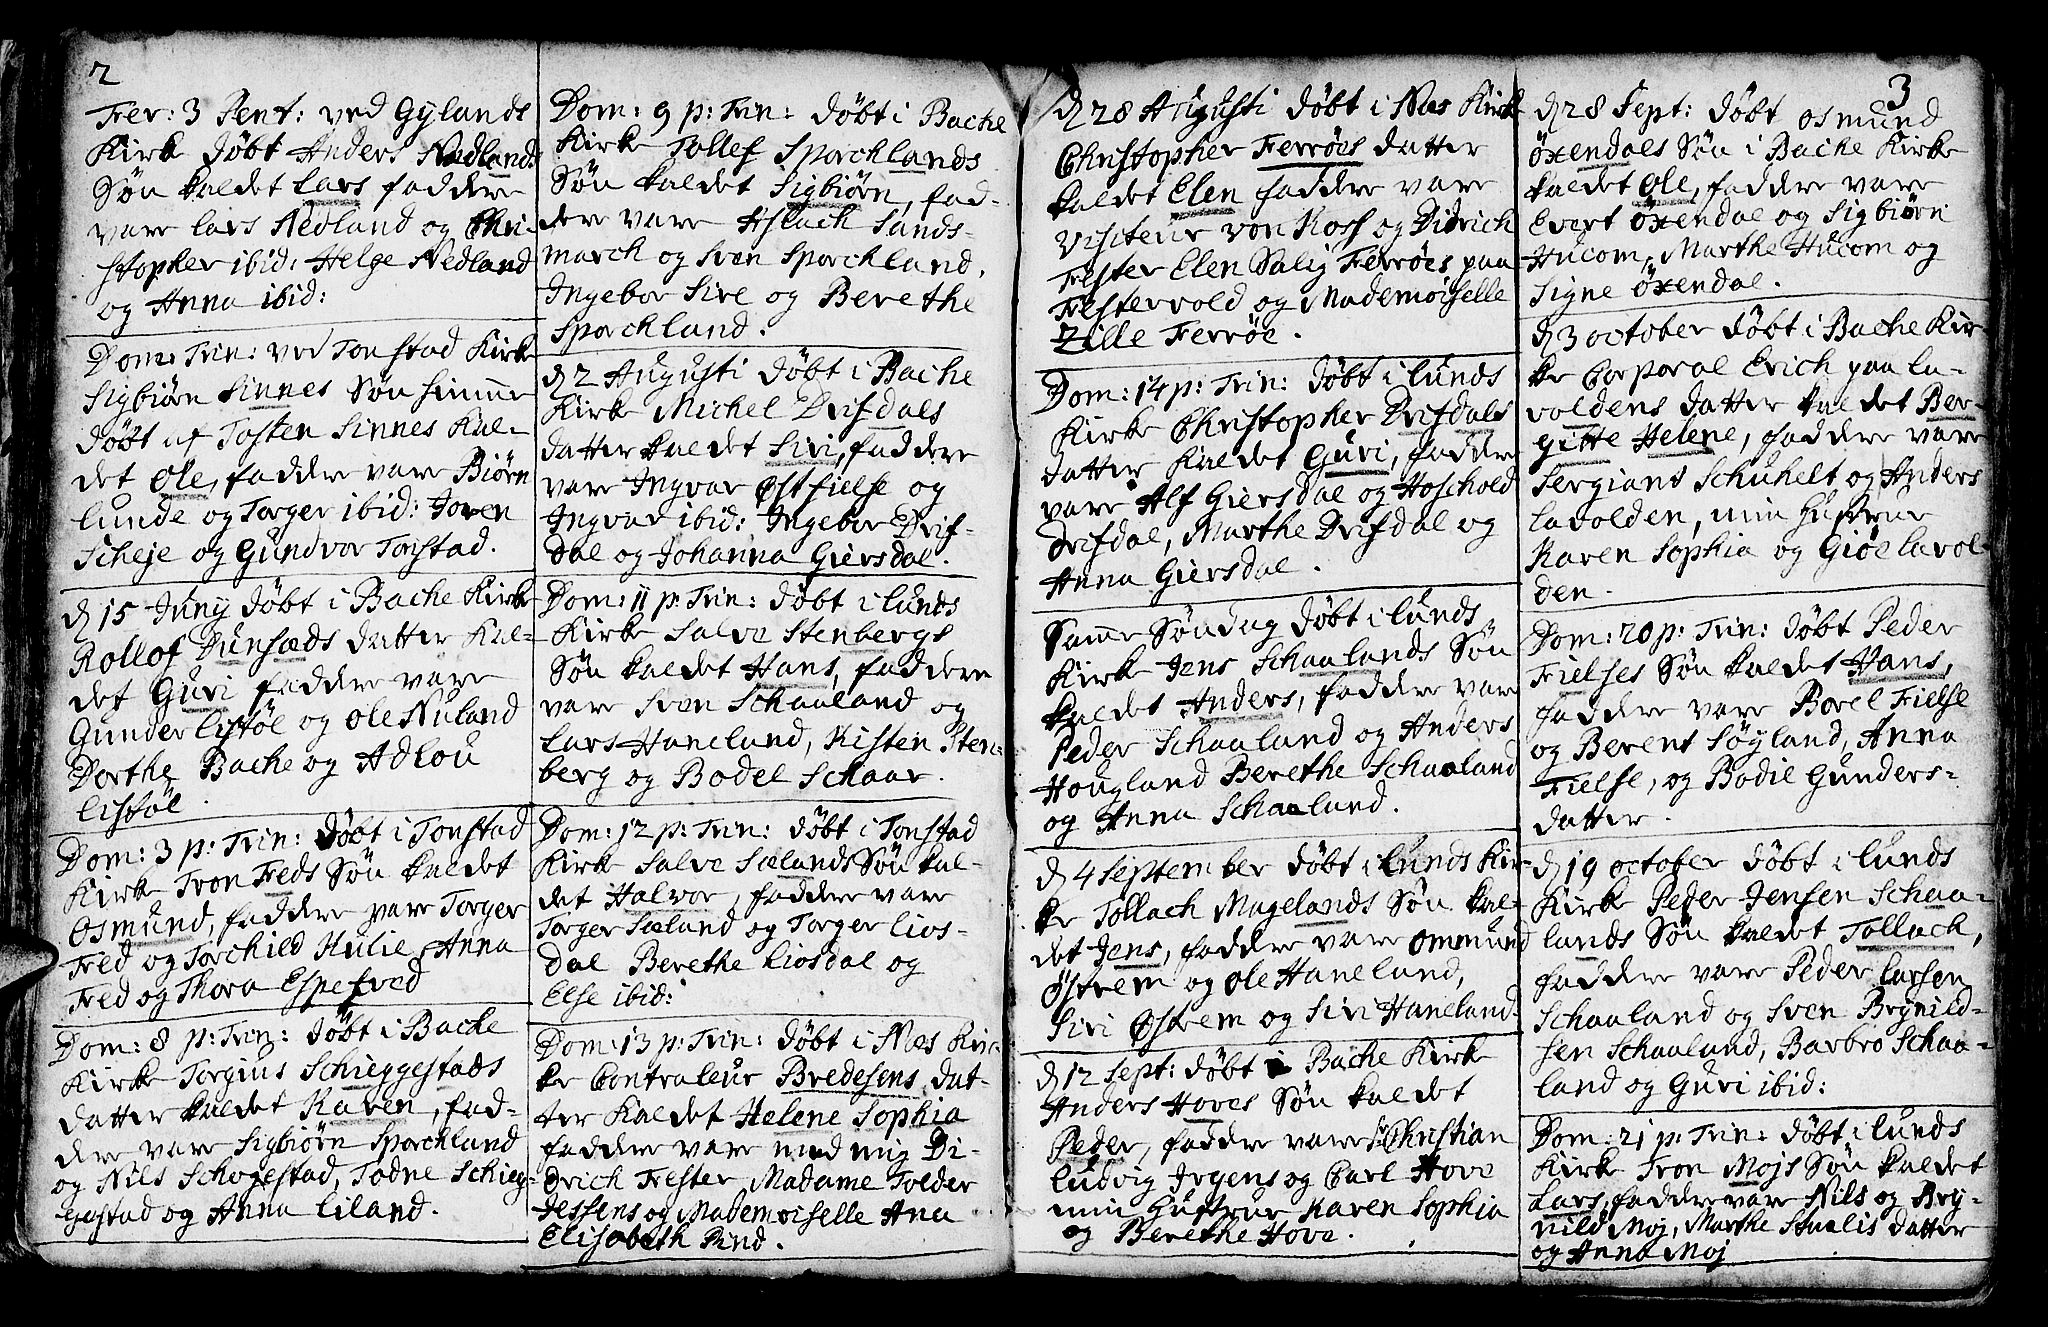 2
Fer: 3 Pent: ved Gylands
Kirke Døbt Anders Nedlands
Søn kaldet Lars faddre
vare Lars Nedland og Chri-
stopher ibid: Helge Nedland
og Anna ibid:
Dom: Trin: ved Tonstad Kirke
Sigbiørn Sinnes Søn himme
døbt af Tosten Sinnes Kal-
det Ole, faddre vare Biørn
Lunde og Torger ibid: Joren
Scheje og Gundvor Tonstad.
d 15 Juny Døbt i Bache Kirke
Rollof Dunsæds datter Kal-
det Guri faddre vare
Gunder Listøl og Ole Nuland
Dorthe Bache og Adlou
Listøl.
Dom: 3 p: Trin: Døbt i Tonstad
Kirke Tron Feds Søn kaldet
Osmund, faddre vare Torger
Fred og Torchild Kulie Anna
Fred og Thora Espetved
Dom: 8 p: Trin: Døbt i Bache
Kirke Torgius Schieggestads
datter kaldet Karen, fad-
dre vare Sigbiørn Sporckland
og Nils Schogestad, Todne Schieg-
gestad og Anna Liland.
Dom: 9 p: Trin: Døbt i Bache
Kirke Tollef Sporchlands
Søn kaldet Sigbiørn, fad-
dere vare Aslach Sands-
march og Sven Sporchland,
Ingebor Sire og Berethe
Sporckland.
d 2 Augusti Døbt i Bache
Kirke Michel Drifdals
datter kaldet Siri, faddere
vare Ingvar Østfielse og
Ingvar ibid: Ingebor Drif-
dal og Johanna Giersdal.
Dom: 11 p: Trin: Døbt i Lunds
Kirke Salve Stenbergs
Søn kaldet Hans, faddere
vare Sven Schaaland og
Lars Haneland, Kisten Sten-
berg og Bodel Schaar.
Dom: 12 p: Trin: Døbt i Tonstad
Kirke Salve Sælands Søn kal-
det Halvor, faddere vare
Torger Sæland og Torger Lios-
dal Berethe Liosdal og
Else ibid:
Dom: 13 p: Trin: Døbt i Næs Kir-
ke Contraleur Bredesens dat-
ter Kaldet Helene Sophia
faddre vare med mig Di-
drich Fester Madame Tolder
Jessens og Mademoiselle Ana
Elisabeth Pind.
d 28 Augusti Døbt i Næs Kirke
Christopher Ferrøes datter
kaldet Elen faddre vare
Visiteur von Koss og Didrich
Fester Elen Salig Ferrøes paa
Festervold og Mademoiselle
Zille Ferrøe.
Dom: 14 p: Trin: Døbt i Lunds
Kirke Christopher Drifdals
datter Kaldet Guri, faddre
vare Alf Giersdal og Hoschold
Drifdal, Marthe Drifdal og
Anna Giersdal.
Samme Søndag Døbt i Lunds
Kirke Jens Schaalands Søn
kaldet Anders, faddre vare
Peder Schaaland og Anders
Hougland Berethe Schaaland
og Anna Schaaland.
d 4 September Døbt i Lunds Kir-
ke Tollach Magelands Søn kal-
det Jens, faddre vare Ommund
Østrem og Ole Haneland,
Siri Østrem og Siri Haneland.
d 12 Sept: Døbt i Bache Kirke
Anders Hoves Søn kaldet
Peder, faddre vare Sr Christian
Ludvig Irgens og Carl Hove
min Hustrue Karen Sophia
og Berethe Hove.
3
d 28 Sept: Døbt Osmund
Øxendals Søn i Bache Kirke
kaldet Ole, faddre vare
Evert Øxendal og Sigbiørn
Hucom, Marthe Hucom og
Signe Øxendal.
d 3 October Døbt i Bache Kir-
ke Corporal Erich paa La-
voldens datter kaldet Ber-
gitte Helene, faddre vare
Sergiant Schuhelt og Anders
Lavolden, min Hustrue
Karen Sophia og Giøe Lavol-
den.
Dom: 20 p: Trin: Døbt Peder
Fielses Søn kaldet Hans,
faddre vare Borel Fielse
og Berent Søyland, Anna
Fielse, og Bodil Gunders-
datter.
d 19 October Døbt i Lunds
Kirke Peder Jensen Schaa-
lands Søn kaldet Tollach,
faddre vare Peder Larsen
Schaaland og Sven Brynild-
sen Schaaland, Barbro Schaa-
land og Guri ibid:
Dom: 21 p: Trin: Døbt i Lunds
Kirke Tron Mojs Søn kaldet
Lars, faddre vare Nils og Bry-
nild Moj, Marthe Stualis datter
og Anna Moj